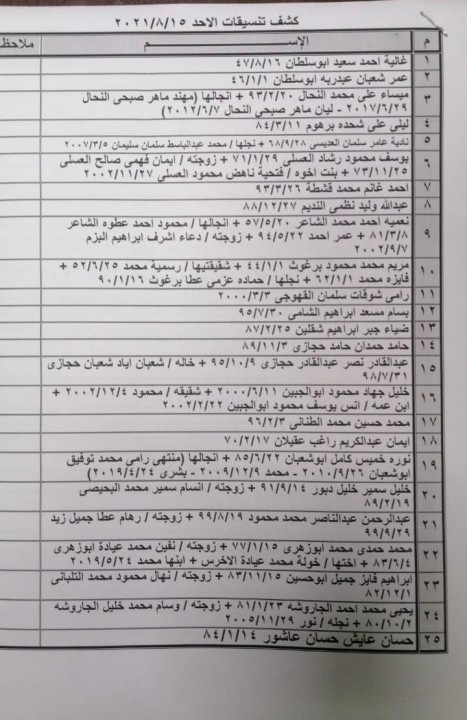 كشف تنسيقات الاحد ٢٠٢١/٨/١٥
م الإســـم ملاحظ
١ غالية احمد سعيد ابوسلطان ٤٧/٨/١٦
٢ عمر شعبان عبدربه ابوسلطان ٤٦/١/١
٣ ميساء على محمد النحال ٩٣/٢/٢٠ + انجالها (مهند ماهر صبحى النحال
٢٠١٧/٦/٢٩ - ليان ماهر صبحى النحال ٢٠١٢/٦/٧)
٤ ليلى على شحده برهوم ٨٤/٣/١١
٥ نادية عامر سلمان العديسى ٦٨/٩/٢٨ + نجلها / محمد عبدالباسط سلمان سليمان ٢٠٠٧/٣/٥
٦ يوسف محمود رشاد العسلى ٧١/١/٢٩ + زوجته / ايمان فهمى صالح العسلى
٧٣/١١/٢٥ + بنت اخوه / فتحية ناهض محمود العسلى ٢٠٠٢/١١/٢٧
٧ احمد غانم محمد قشطة ٩٣/٣/٢٦
٨ عبدالله وليد نظمى النديم ٨٨/١٢/٢٧
٩ نعميه احمد محمد الشاعر ٥٧/٥/٢٠ + انجالها / محمود احمد عطوه الشاعر
٨١/٣/٨ + عمر احمد ٩٤/٥/٢٢ + زوجته / دعاء اشرف ابراهيم البزم
٢٠٠٢/٩/٧
١٠ مريم محمد محمود برغوث ٤٤/١/١ + شقيقتيها / رسمية محمد ٥٢/٦/٢٥ +
فايزه محمد ٦٢/١/١ + نجلها / حماده عزمى عطا برغوث ٩٠/١/١٦
١١ رامى شوقات سلمان القهوجى ٢٠٠٠/٣/٣
١٢ بسام مسعد ابراهيم الشامى ٩٥/٧/٣٠
١٣ ضياء جبر ابراهيم شقلين ٨٧/٢/٢٥
١٤ حامد حمدان حامد حجازى ٨٩/١١/٣
١٥ عبدالقادر نصر عبدالقادر حجازى ٩٥/١٠/٩ + خاله / شعبان اياد شعبان حجازى
٩٨/٧/٣١
١٦ خليل جهاد محمود ابوالجبين ٢٠٠٠/٦/١١ + شقيقه / محمود ٢٠٠٢/١٢/٤ +
ابن عمه / انس يوسف محمود ابوالجبين ٢٠٠٢/٢/٢٢
١٧ محمد حسين محمد الطنانى ٩٦/٢/٣
١٨ ايمان عبدالكريم راغب عقيلان ٧٠/٢/١٧
١٩ نوره خميس كامل ابوشعبان ٨٥/٦/٢٢ + انجالها (منتهى رامى محمد توفيق
ابوشعبان ٢٠١٠/٩/٢٦ - محمد ٢٠٠٩/١٢/٩ - بشرى ٢٠١٩/٤/٢٤)
٢٠ خليل سمير خليل دبور ٩١/٩/١٤ + زوجته / انسام سمير محمد البحيصى
٨٩/٢/١٩
٢١ عبدالرحمن عبدالناصر محمد محمود ٩٩/٨/١٩ + زوجته / رهام عطا جميل زيد
٩٩/٩/٢٩
٢٢ محمد حمدى محمد ابوزهرى ٧٧/١/١٥ + زوجته / نفين محمد عيادة ابوزهرى
٨٣/٦/٤ + اختها / خولة محمد عيادة الاخرس + ابنها محمد ٢٠١٩/٥/٢٤
٢٣ ابراهيم فايز جميل ابوحسين ٨٣/١١/١٥ + زوجته / نهال محمود محمد التلبانى
٨٢/١٢/١
٢٤ يحيى محمد احمد الجاروشه ٨١/١/٢٣ + زوجته / وسام محمد خليل الجاروشه
٨٠/١٠/٢ + نجله / نور ٢٠٠٥/١١/٢٩
٢٥ حسان عايش حسان عاشور ٨٤/١/١٤